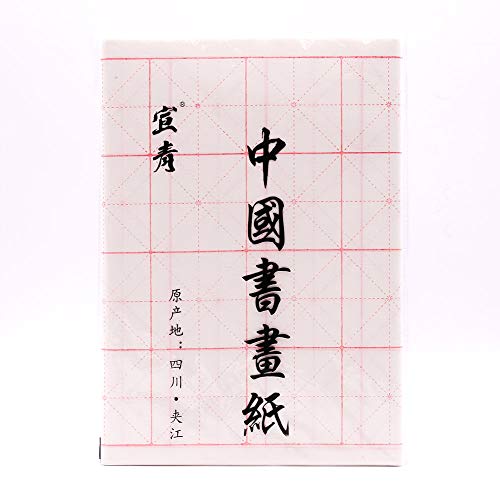 宣青®
中國書畫紙
原产地：四川·夹江